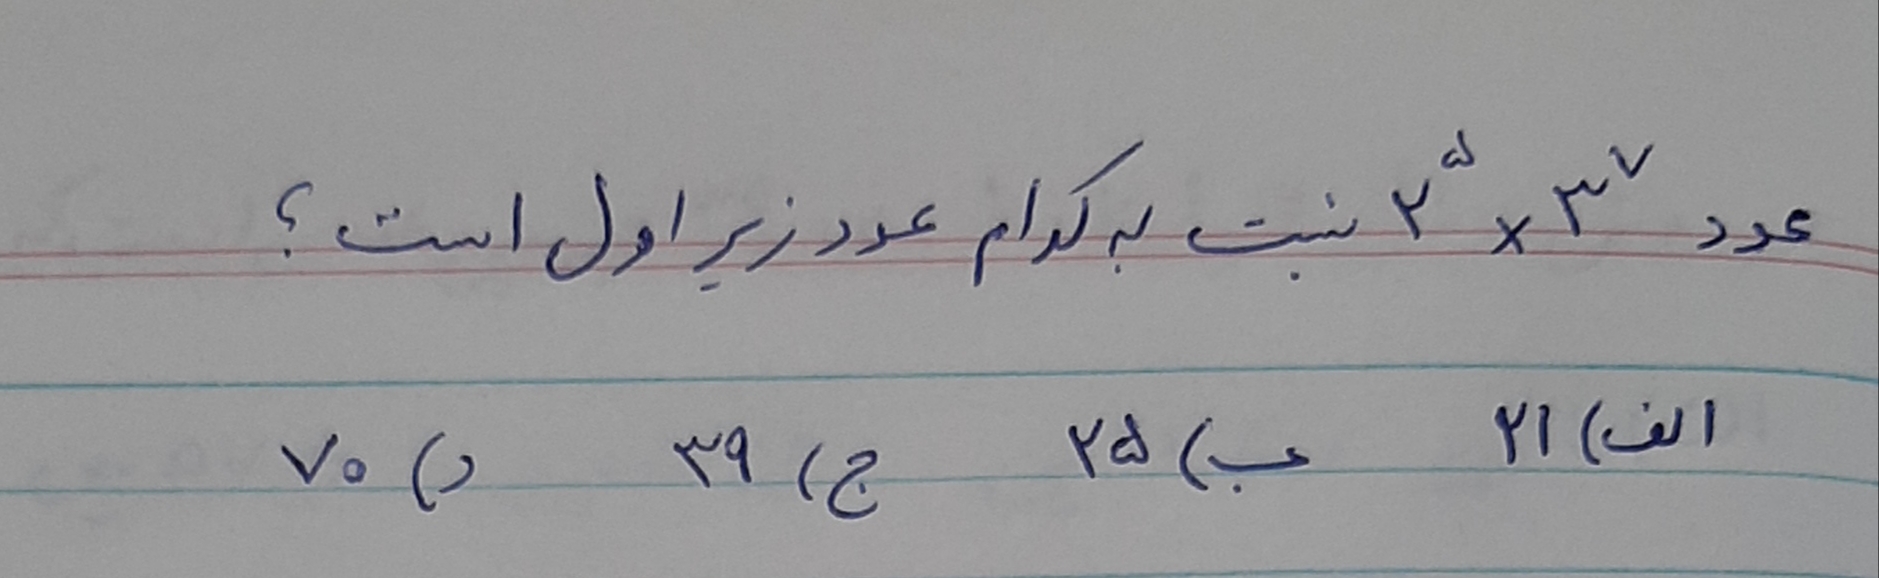 عدد ۲^۵ × ۳^۷ نسبت به کدام عدد زیر اول است ؟
الف) ۲۱ ب) ۲۵ ج) ۳۹ د) ۷۰